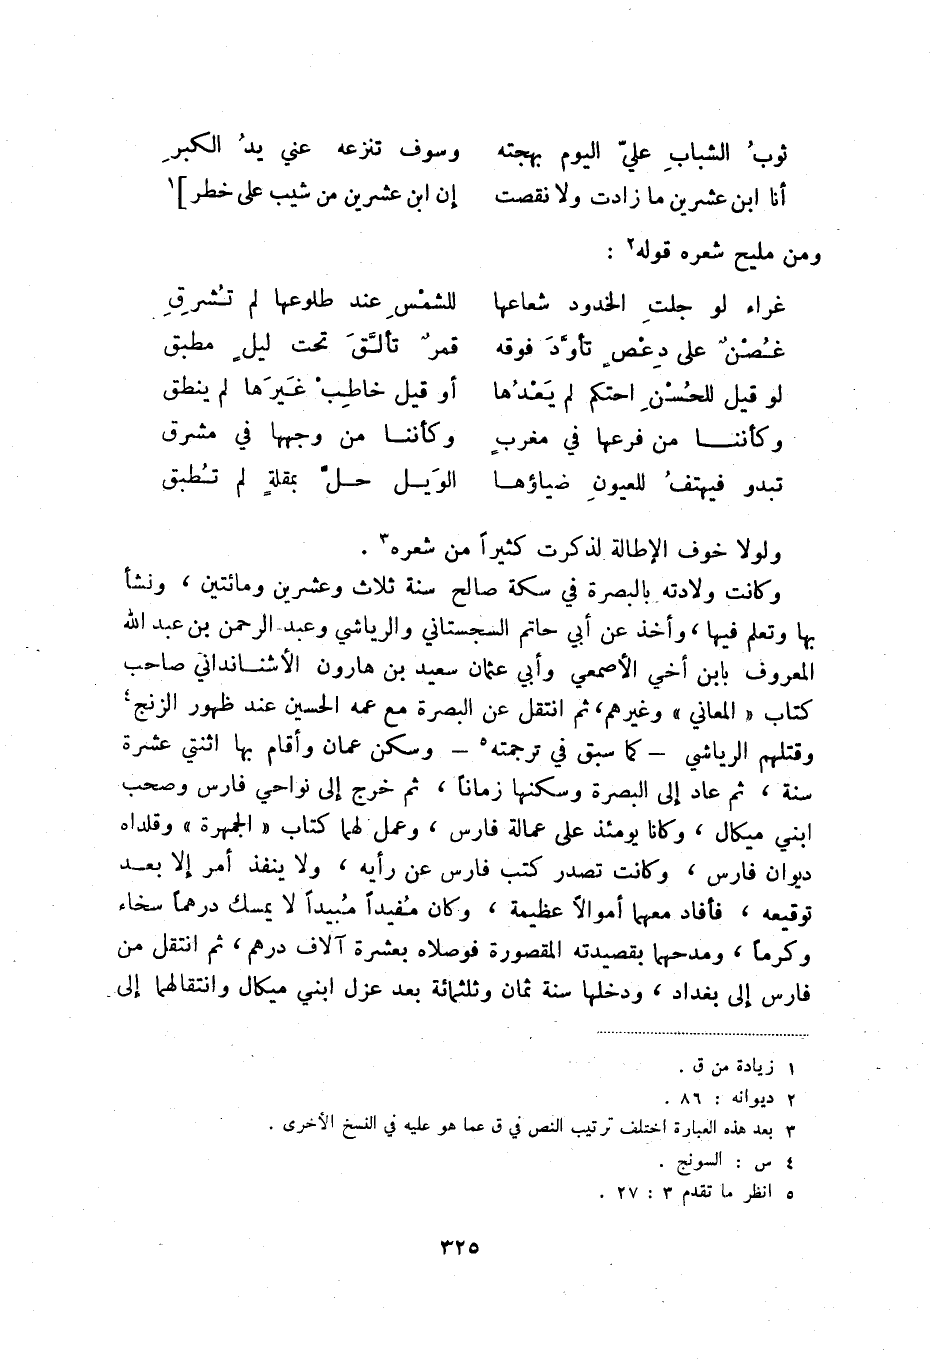 ثوبُ الشبابِ عليّ اليوم بهجته وسوف تنزعه عني يدُ الكبرِ
أنا ابن عشرين ما زادت ولا نقصت إن ابن عشرين من شيب على خطر]١
ومن مليح شعره قوله٢ :
غراء لو جلتِ الخدود شعاعها للشمْسِ عند طلوعها لم تُشرِقِ
غُصْنٌ على دِعْصٍ تأوَّدَ فوقه قمرٌ تألَّقَ تحت ليلٍ مطبق
لو قيل للحُسْنِ احتكم لم يَعْدُها أو قيل خاطِبْ غَيرَها لم ينطق
وكأننــا من فرعها في مغربٍ وكأننــا من وجهها في مشرق
تبدو فيهتفُ للعيونِ ضياؤهــا الوَيــل حــلَّ بمقلةٍ لم تُطبق
ولولا خوف الإطالة لذكرت كثيراً من شعره٣ .
وكانت ولادته بالبصرة في سكة صالح سنة ثلاث وعشرين ومائتين ، ونشأ
بها وتعلم فيها ، وأخذ عن أبي حاتم السجستاني والرياشي وعبد الرحمن بن عبد الله
المعروف بابن أخي الأصمعي وأبي عثمان سعيد بن هارون الأشنــانداني صاحب
كتاب « المعاني » وغيرهم، ثم انتقل عن البصرة مع عمه الحسين عند ظهور الزنج٤
وقتلهم الرياشي – كما سبق في ترجمته٥ – وسكن عمان وأقام بها اثنتي عشرة
سنة ، ثم عاد إلى البصرة وسكنها زماناً ، ثم خرج إلى نواحي فارس وصحب
ابني ميكال ، وكانا يومئذ على عمالة فارس ، وعمل لهما كتاب « الجمهرة » وقلداه
ديوان فارس ، وكانت تصدر كتب فارس عن رأيه ، ولا ينفذ أمر إلا بعــد
توقيعه ، فأفاد معهما أموالاً عظيمة ، وكان مُفيداً مُبيداً لا يمسك درهماً سخاء
وكرماً ، ومدحهما بقصيدته المقصورة فوصلاه بعشرة آلاف درهم ، ثم انتقل من
فارس إلى بغداد ، ودخلها سنة ثمان وثلثمائة بعد عزل ابني ميكال وانتقالهما إلى
١ زيادة من ق .
٢ ديوانه : ٨٦ .
٣ بعد هذه العبارة اختلف ترتيب النص في ق عما هو عليه في النسخ الأخرى .
٤ س : السونج .
٥ انظر ما تقدم ٣ : ٢٧ .
٣٢٥